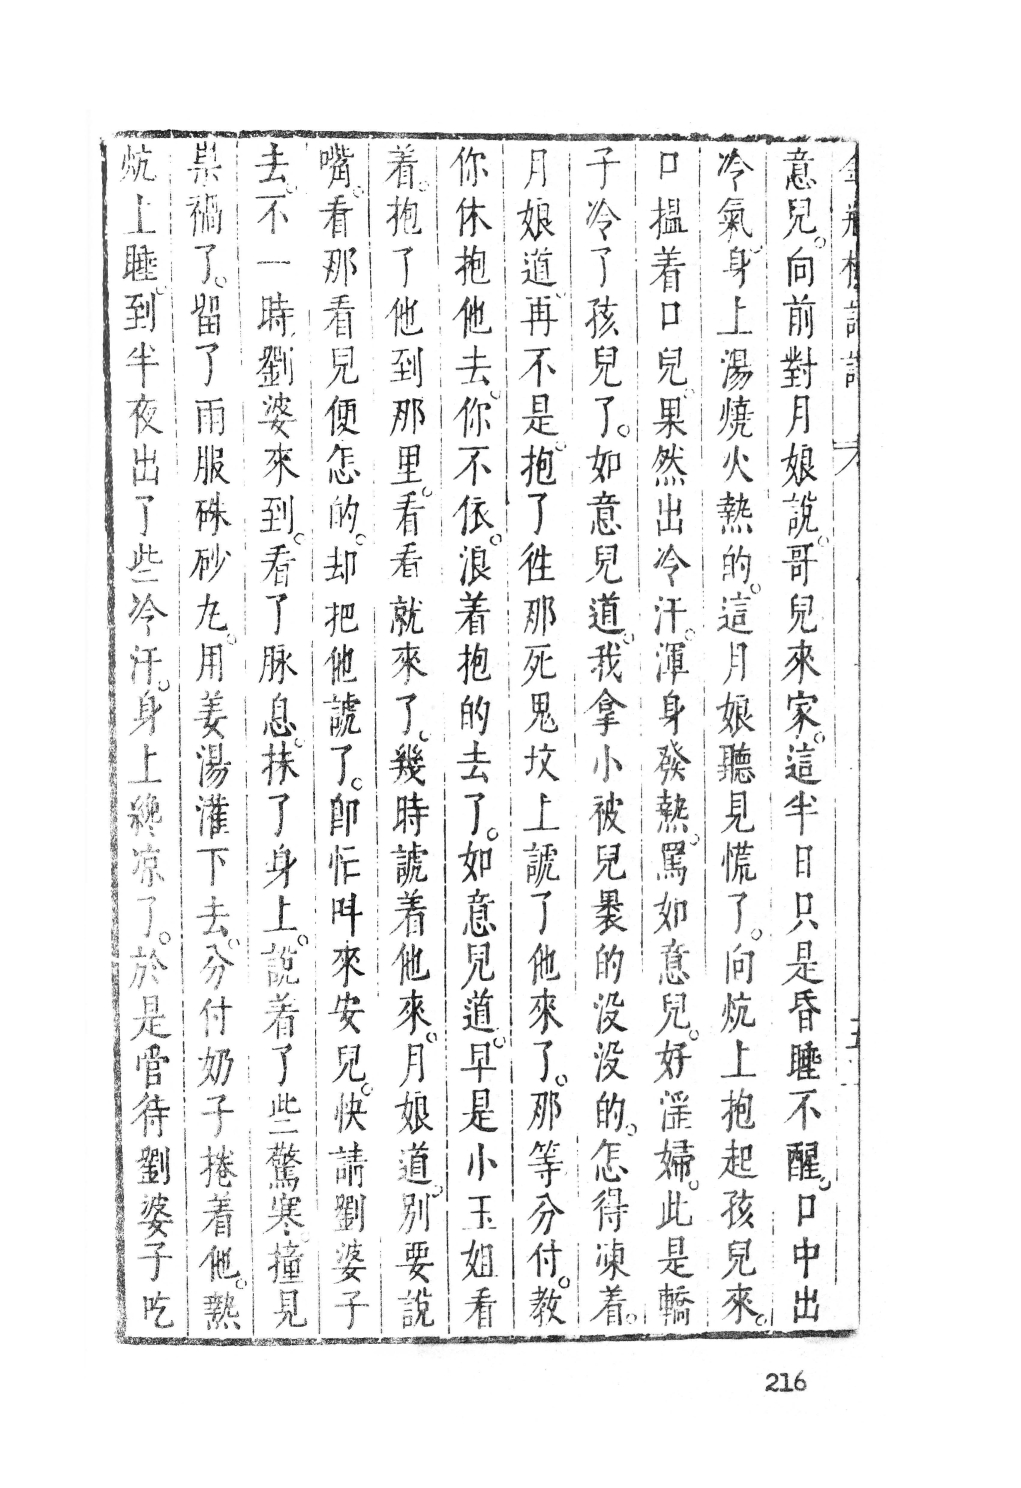 意兒。向前對月娘說。哥兒來家。這半日只是昏睡不醒。口中出
冷氣。身上湯燒火熱的。這月娘聽見慌了。向炕上抱起孩兒來。
口搵着口兒。果然出冷汗。渾身發熱。罵如意兒。好淫婦。此是轎
子冷了孩兒了。如意兒道。我拿小被兒裹的没没的。怎得凍着。
月娘道。再不是。抱了徃那死鬼坟上諕了他來了。那等分付。教
你休抱他去。你不依。浪着抱的去了。如意兒道。早是小玉姐看
着。抱了他到那里。看看就來了。幾時諕着他來。月娘道。別要說
嘴。看那看兒便怎的。却把他諕了。卽忙呌來安兒。快請劉婆子
去。不一時劉婆來到。看了脉息。抹了身上。說着了些驚寒。撞見
祟禍了。留了兩服硃砂丸。用姜湯灌下去。分付奶子捲着他。熱
炕上睡。到半夜出了些冷汗。身上纔凉了。於是管待劉婆子吃
216